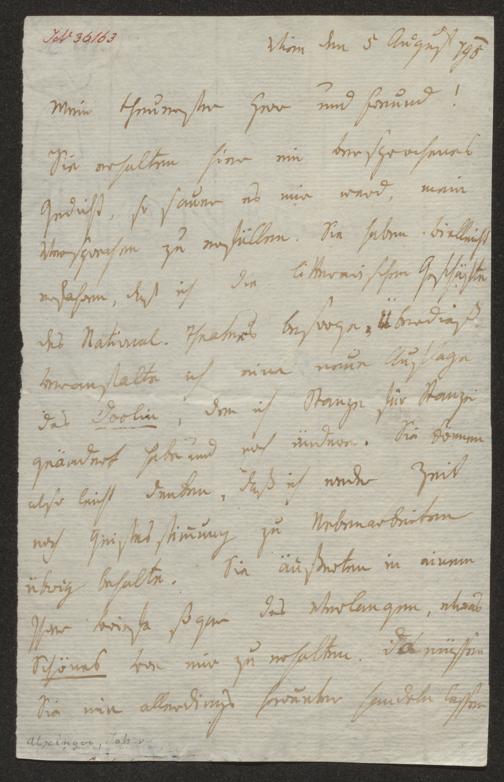 Wien den 5 August 795
Mein theuerster Herr und Freund!
Sie erhalten hier ein versprochenes
Gedicht, so sauer es mir ward, mein
Versprechen zu erfüllen. Sie haben vielleicht
erfahren, daß ich die litterarischen Geschäfte
des National-Theaters besorge, überdieß
veranstalte ich eine neue Auflage
des Doolin, den ich Stanze für Stanze
geändert habe und noch ändere. Sie können
also leicht denken, daß ich weder Zeit
noch Geistesstimmung zu Nebenarbeiten
übrig behalte. Sie äußerten in einem
Ihrer Briefe sogar das Verlangen, etwas
Schönes von mir zu erhalten. Da müssen
Sie mir allerdings herunter handeln lassen
Alxinger, Joh. v.